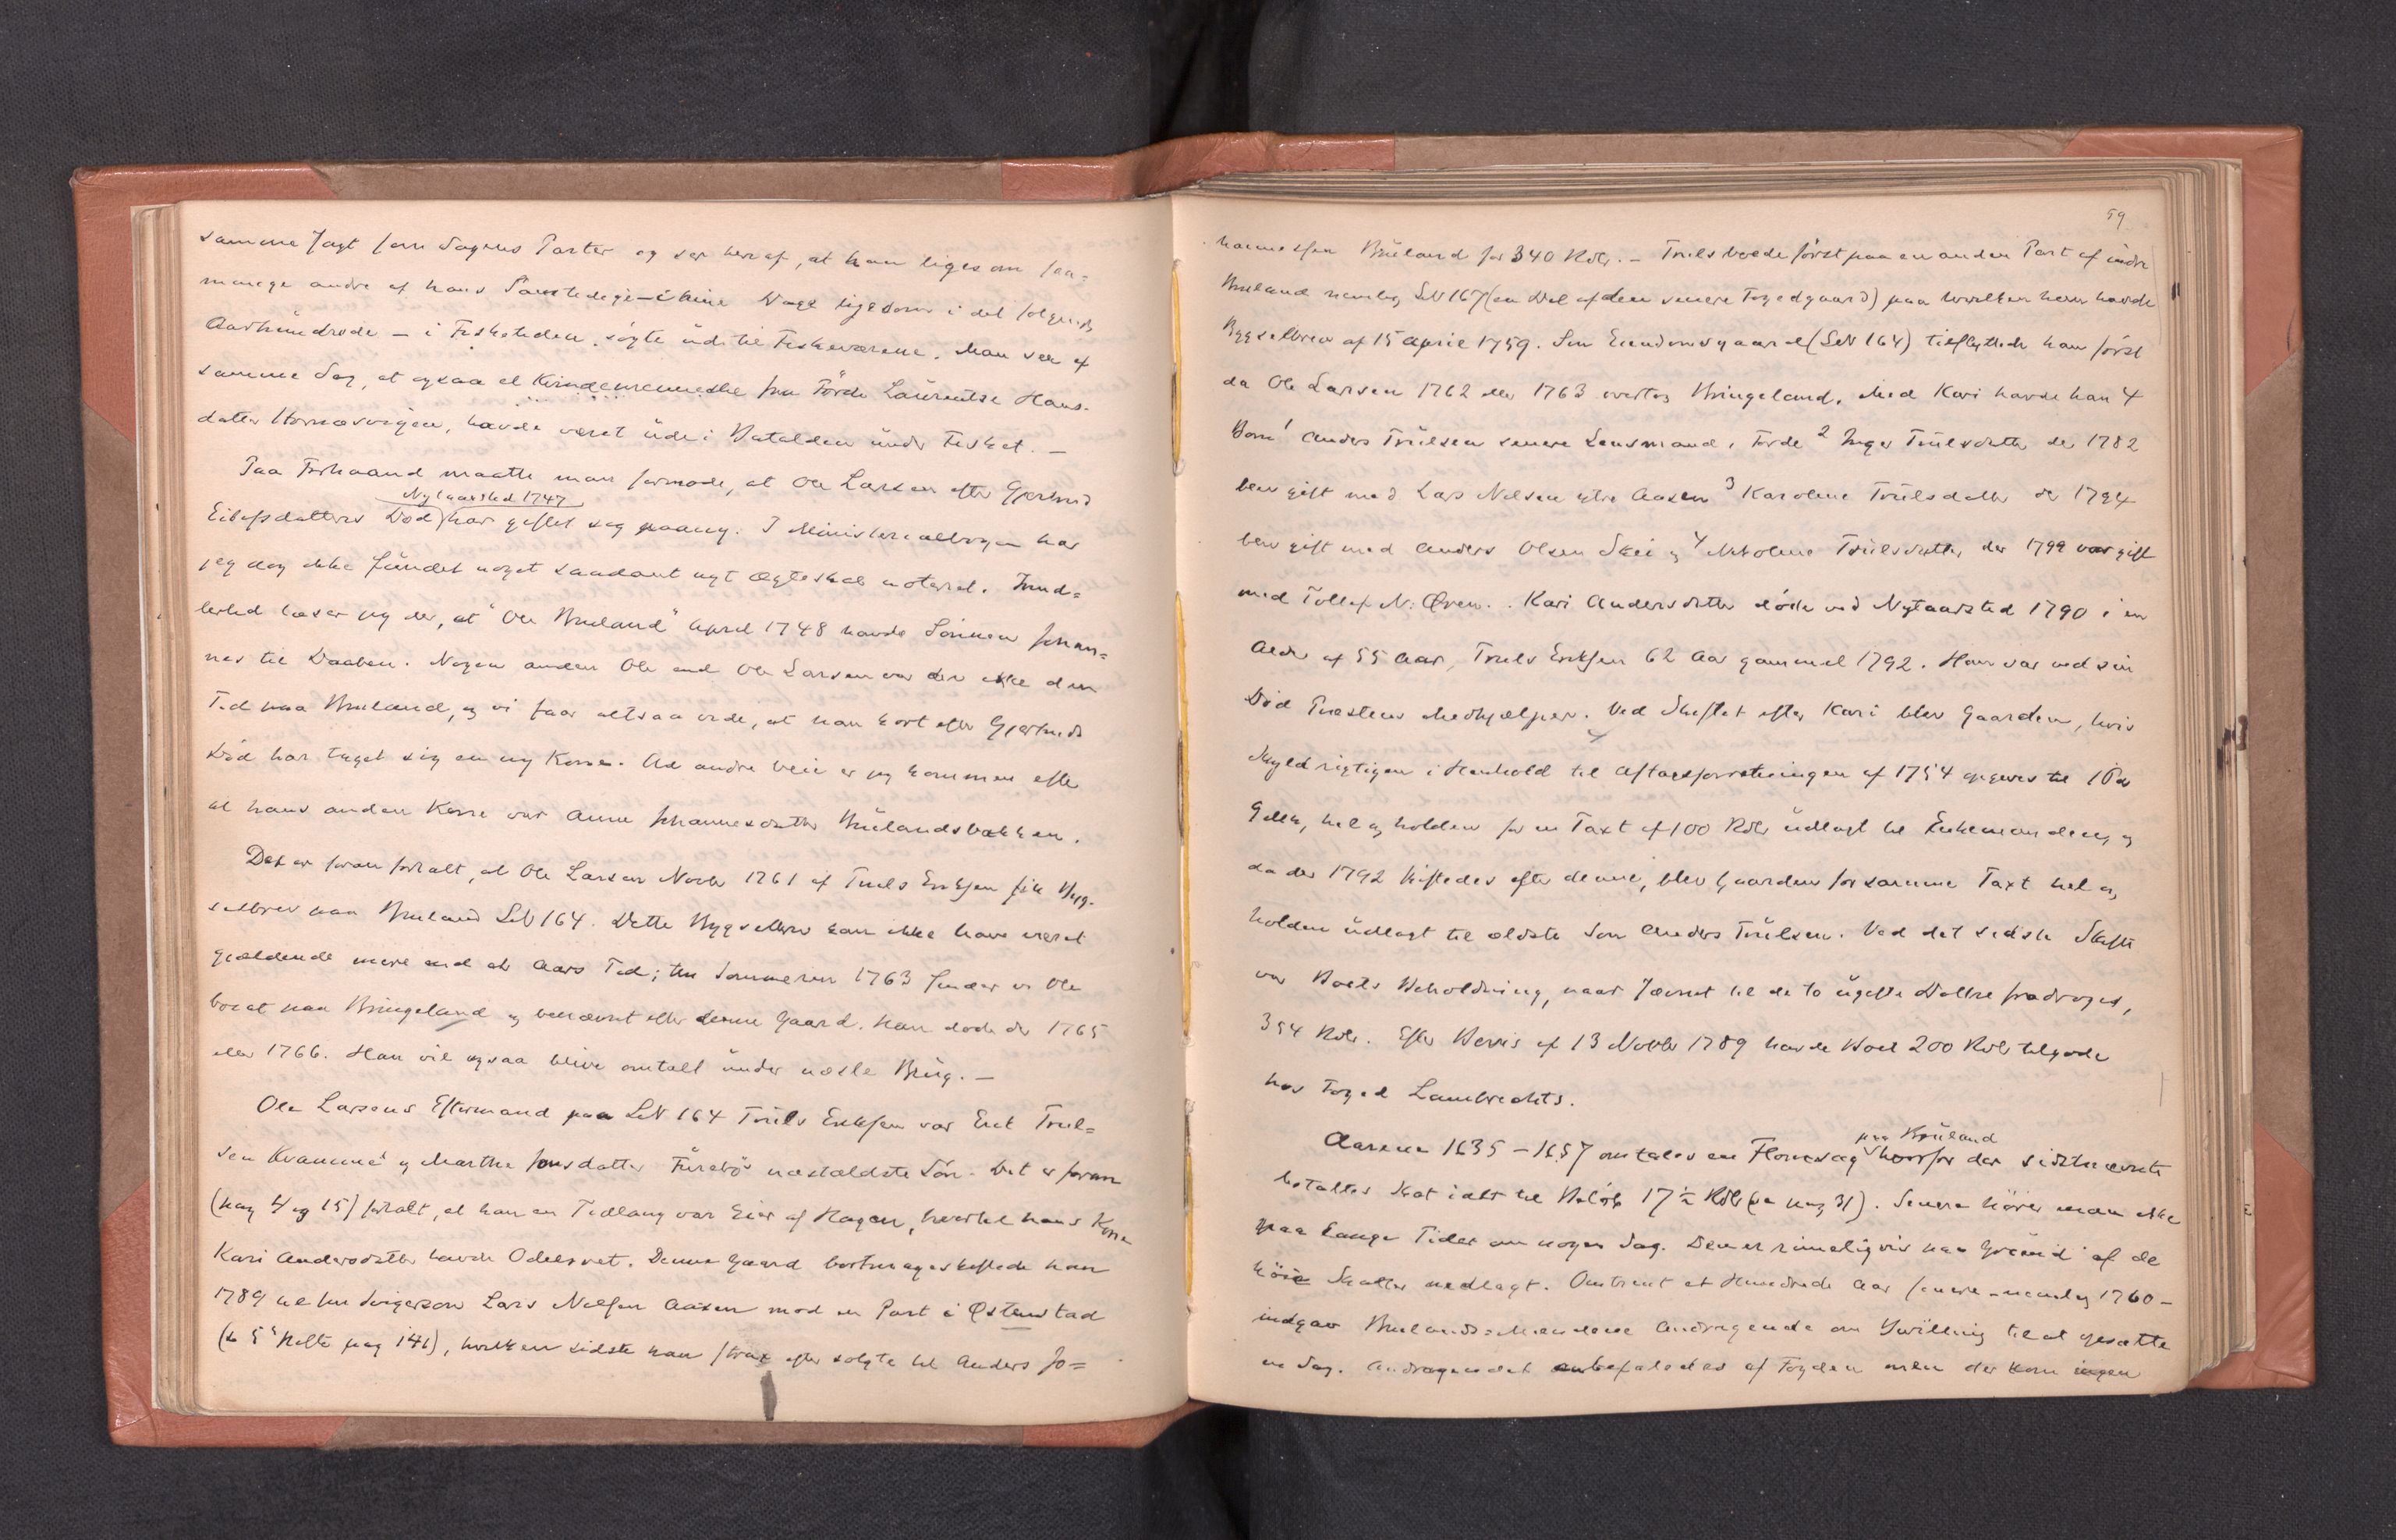 samme Jagt som Sagens Parter og ser heraf, at han ligesom saa=
mange andre af hans Samtidige – i hine Dage ligesom i det følgende
Aarhundrede – i Fisketiden søgte ud til Fiskeværene. Man ser af
samme Sag, at ogsaa et Kvindemenneske fra Förde Lauritse Hans-
datter Hornæsvigen, havde været ude i Batalden under Fisket. –
Paa Forhaand maatte man formode, at Ole Larsen efter Gjertrud
Nytaarstid 1747
Eilefsdatters Død har giftet sig paany. I Ministerialbogen har
jeg dog ikke fundet noget saadant nyt Ægteskab noteret. Imid=
lertid læser jeg der, at "Ole Bruland" April 1748 havde Sönnen Johan=
nes til Daaben. Nogen anden Ole end Ole Larsen var der ikke den
Tid paa Bruland, og vi faar altsaa vide, at han kort efter Gjertruds
Död har taget sig en ny Kone. Ad andre Veie er jeg kommen efter
at hans anden Kone var Anne Johannesdatter Brulandsbakken.
Det er foran fortalt, at Ole Larsen Novbr 1761 af Truls Eriksen fik Byg-
selbrev paa Bruland LN 164. Dette Bygselbrev kan ikke have været
gjældende mere end et Aars Tid; thi Sommeren 1763 finder vi Ole
boeat paa Bringeland og benævnt efter denne Gaard. Han døde der 1765
eller 1766. Han vil ogsaa blive omtalt under næste Brug. –
Ole Larsens Eftermand paa LN 164 Truls Eriksen var Erik Trul=
sen Kvamme's og Marthe Jonsdatter Furebö's næstældste Sön. Det er foran
(pag 4 og 15) fortalt, at han en Tidlang var Eier af Hagen, hvortil hans Kone
Kari Andersdatter havde Odelsret. Denne Gaard bortmageskiftede han
1789 til sin Svigersøn Lars Nelsen Aasen mod en Part i Østenstad
(se 5te Hefte pag 141), hvilken sidste han strax efter solgte til Anders Jo=
59
hannessen Bruland for 340 Rdlr. – Truls boede först paa en anden Part af indre
Bruland nemlig LN 167 (en Del af den senere Fogedgaard) paa hvilken han havde
Bygselbrev af 15 April 1759. Sin Eiendomsgaard (LN 164) tilflyttede han först
da Ole Larsen 1762 eller 1763 overtog Bringeland. Med Kari havde han 4
Börn 1 Anders Trulsen senere Lensmand i Förde 2 Inger Trulsdatter der 1782
blev gift med Lars Nelsen ytre Aasen 3 Karolene Trulsdatter der 1794
blev gift med Anders Olsen Skei og 4 Nikoline Trulsdatter, der 1799 var gift
med Tollef N: Øren. Kari Andersdatter döde ved Nytaarstid 1790 i en
Alder af 55 Aar, Truls Eriksen 62 Aar gammel 1792. Han var ved sin
Död Præstens Medhjælper. Ved Skiftet efter Kari blev Gaarden, hvis
Skyld rigtigen i Henhold til Aftagsforretningen af 1754 opgives til 1 Pd
Gilden, hel og holden for en Taxt af 100 Rdlr udlagt til Enkemanden, og
da der 1792 skiftedes efter denne, blev Gaarden for samme Taxt hel og
holden udlagt til ældste Sön Anders Trulsen. Ved det sidste Skifte
var Boets Beholdning, naar Jævnet til de to ugifte Døttre fradroges,
354 Rdlr. Efter Bevis af 13 Novbr 1789 havde Boet 200 Rdlr tilgode
hos Foged Lambrechts.
paa Bruland
Aarene 1635 – 1657 omtales en Flomsag hvorfor der sidstnævnte
betaltes Skat ialt til Belöb 17½ Rdlr (se pag 31). Senere hörer man ikke
paa lange Tider om nogen Sag. Den er rimeligvis paa Grund af de
höie Skatter nedlagt. Omtrent et Hundrede Aar senere – nemlig 1760 –
indgav Brulands-Mændene Andragende om Bevilling til at opsætte
en Sag. Andragendet anbefaledes af Fogden men der kom ingen